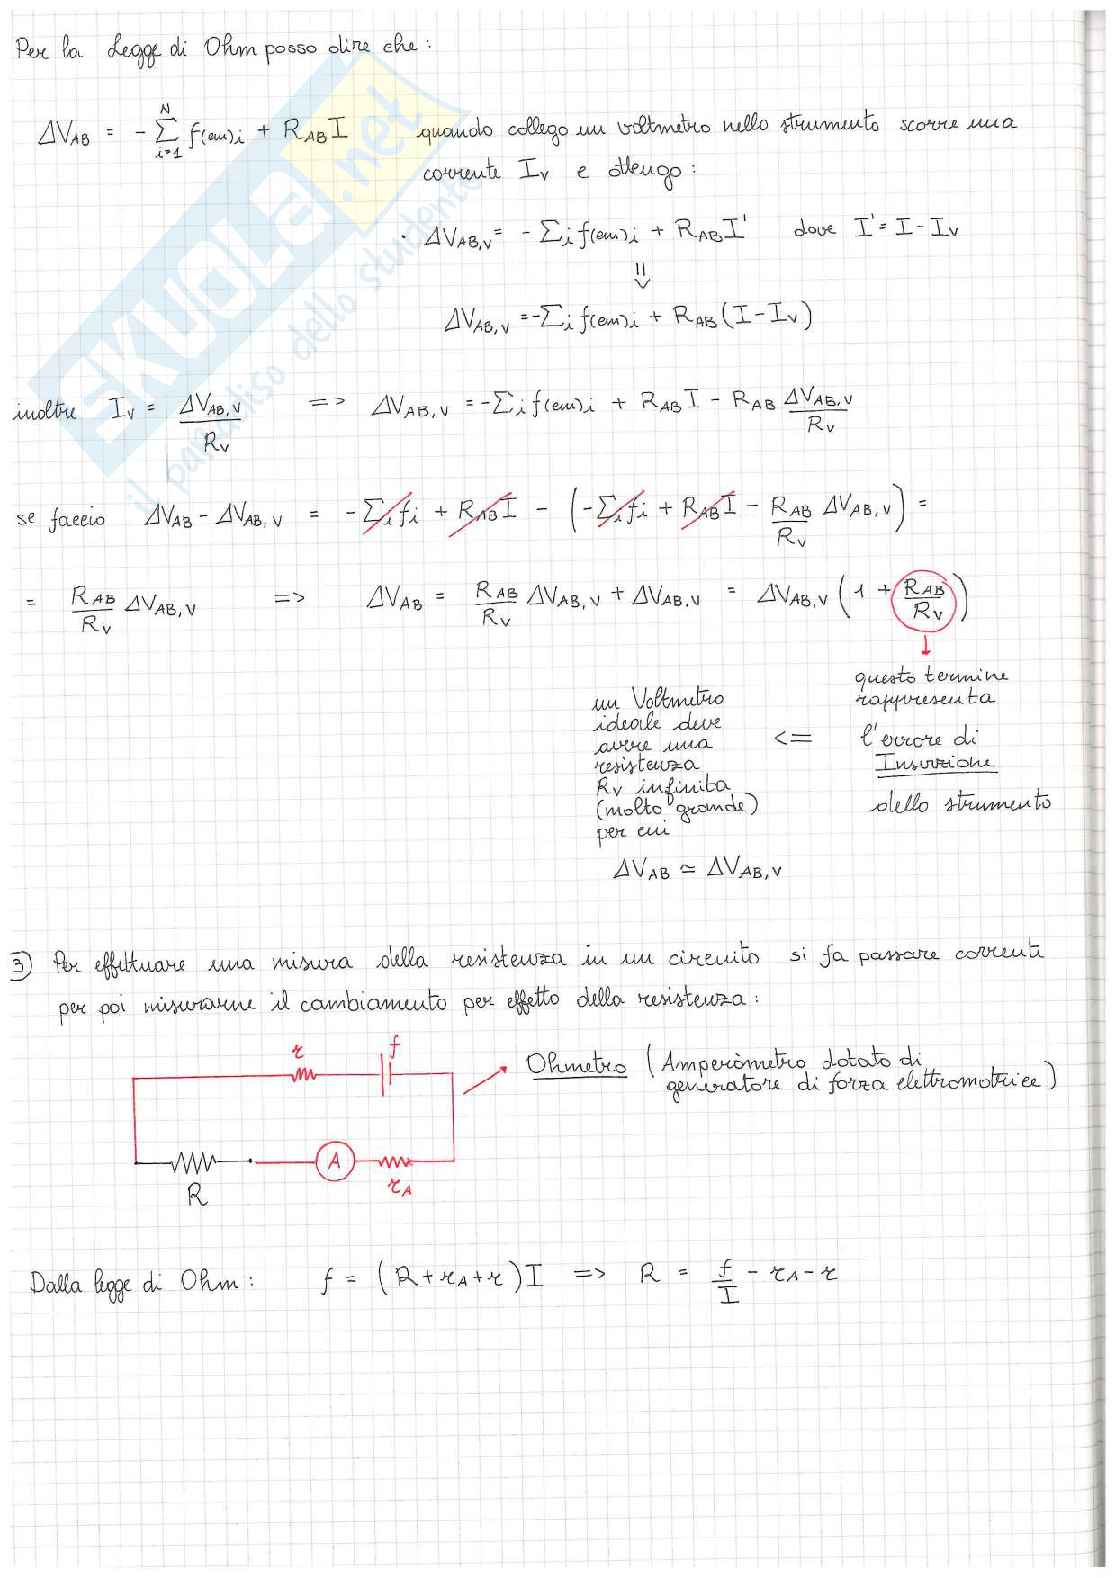 Per la Legge di Ohm posso dire che :
ΔV_AB = - Σ_{i=1}^{N} f(em)_i + R_AB I quando collego un voltmetro nello strumento scorre una
corrente I_V e ottengo :
ΔV_AB,V = - Σ_i f(em)_i + R_AB I' dove I' = I - I_V
⇓
ΔV_AB,V = - Σ_i f(em)_i + R_AB (I - I_V)
inoltre I_V = ΔV_AB,V / R_V => ΔV_AB,V = - Σ_i f(em)_i + R_AB I - R_AB ΔV_AB,V / R_V
se faccio ΔV_AB - ΔV_AB,V = - Σ_i f_i + R_AB I - ( - Σ_i f_i + R_AB I - R_AB / R_V ΔV_AB,V ) =
= R_AB / R_V ΔV_AB,V => ΔV_AB = R_AB / R_V ΔV_AB,V + ΔV_AB,V = ΔV_AB,V ( 1 + R_AB / R_V )
questo termine
rappresenta
l'errore di
Inserzione
dello strumento
<=
un Voltmetro
ideale deve
avere una
resistenza
R_V infinita
(molto grande)
per cui
ΔV_AB ≃ ΔV_AB,V
3) Per effettuare una misura della resistenza in un circuito si fa passare corrente
per poi misurarne il cambiamento per effetto della resistenza :
r f
Ohmetro ( Amperòmetro dotato di
generatore di forza elettromotrice )
A
R r_A
Dalla legge di Ohm : f = ( R + r_A + r ) I => R = f / I - r_A - r
SKUOLA.net
il paradiso dello studente